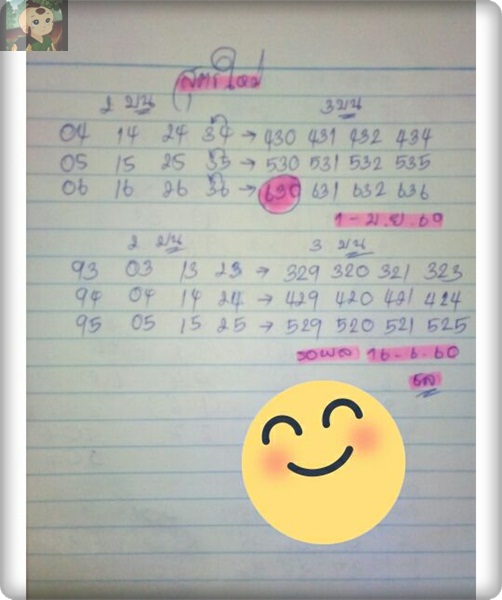 สูตรใหม่
2 บน 3 บน
04 14 24 34 → 430 431 432 434
05 15 25 35 → 530 531 532 535
06 16 26 36 → 630 631 632 636
1 - มิ.ย. 60
2 บน 3 บน
93 03 13 23 → 329 320 321 323
94 04 14 24 → 429 420 421 424
95 05 15 25 → 529 520 521 525
รอผล 16-6-60